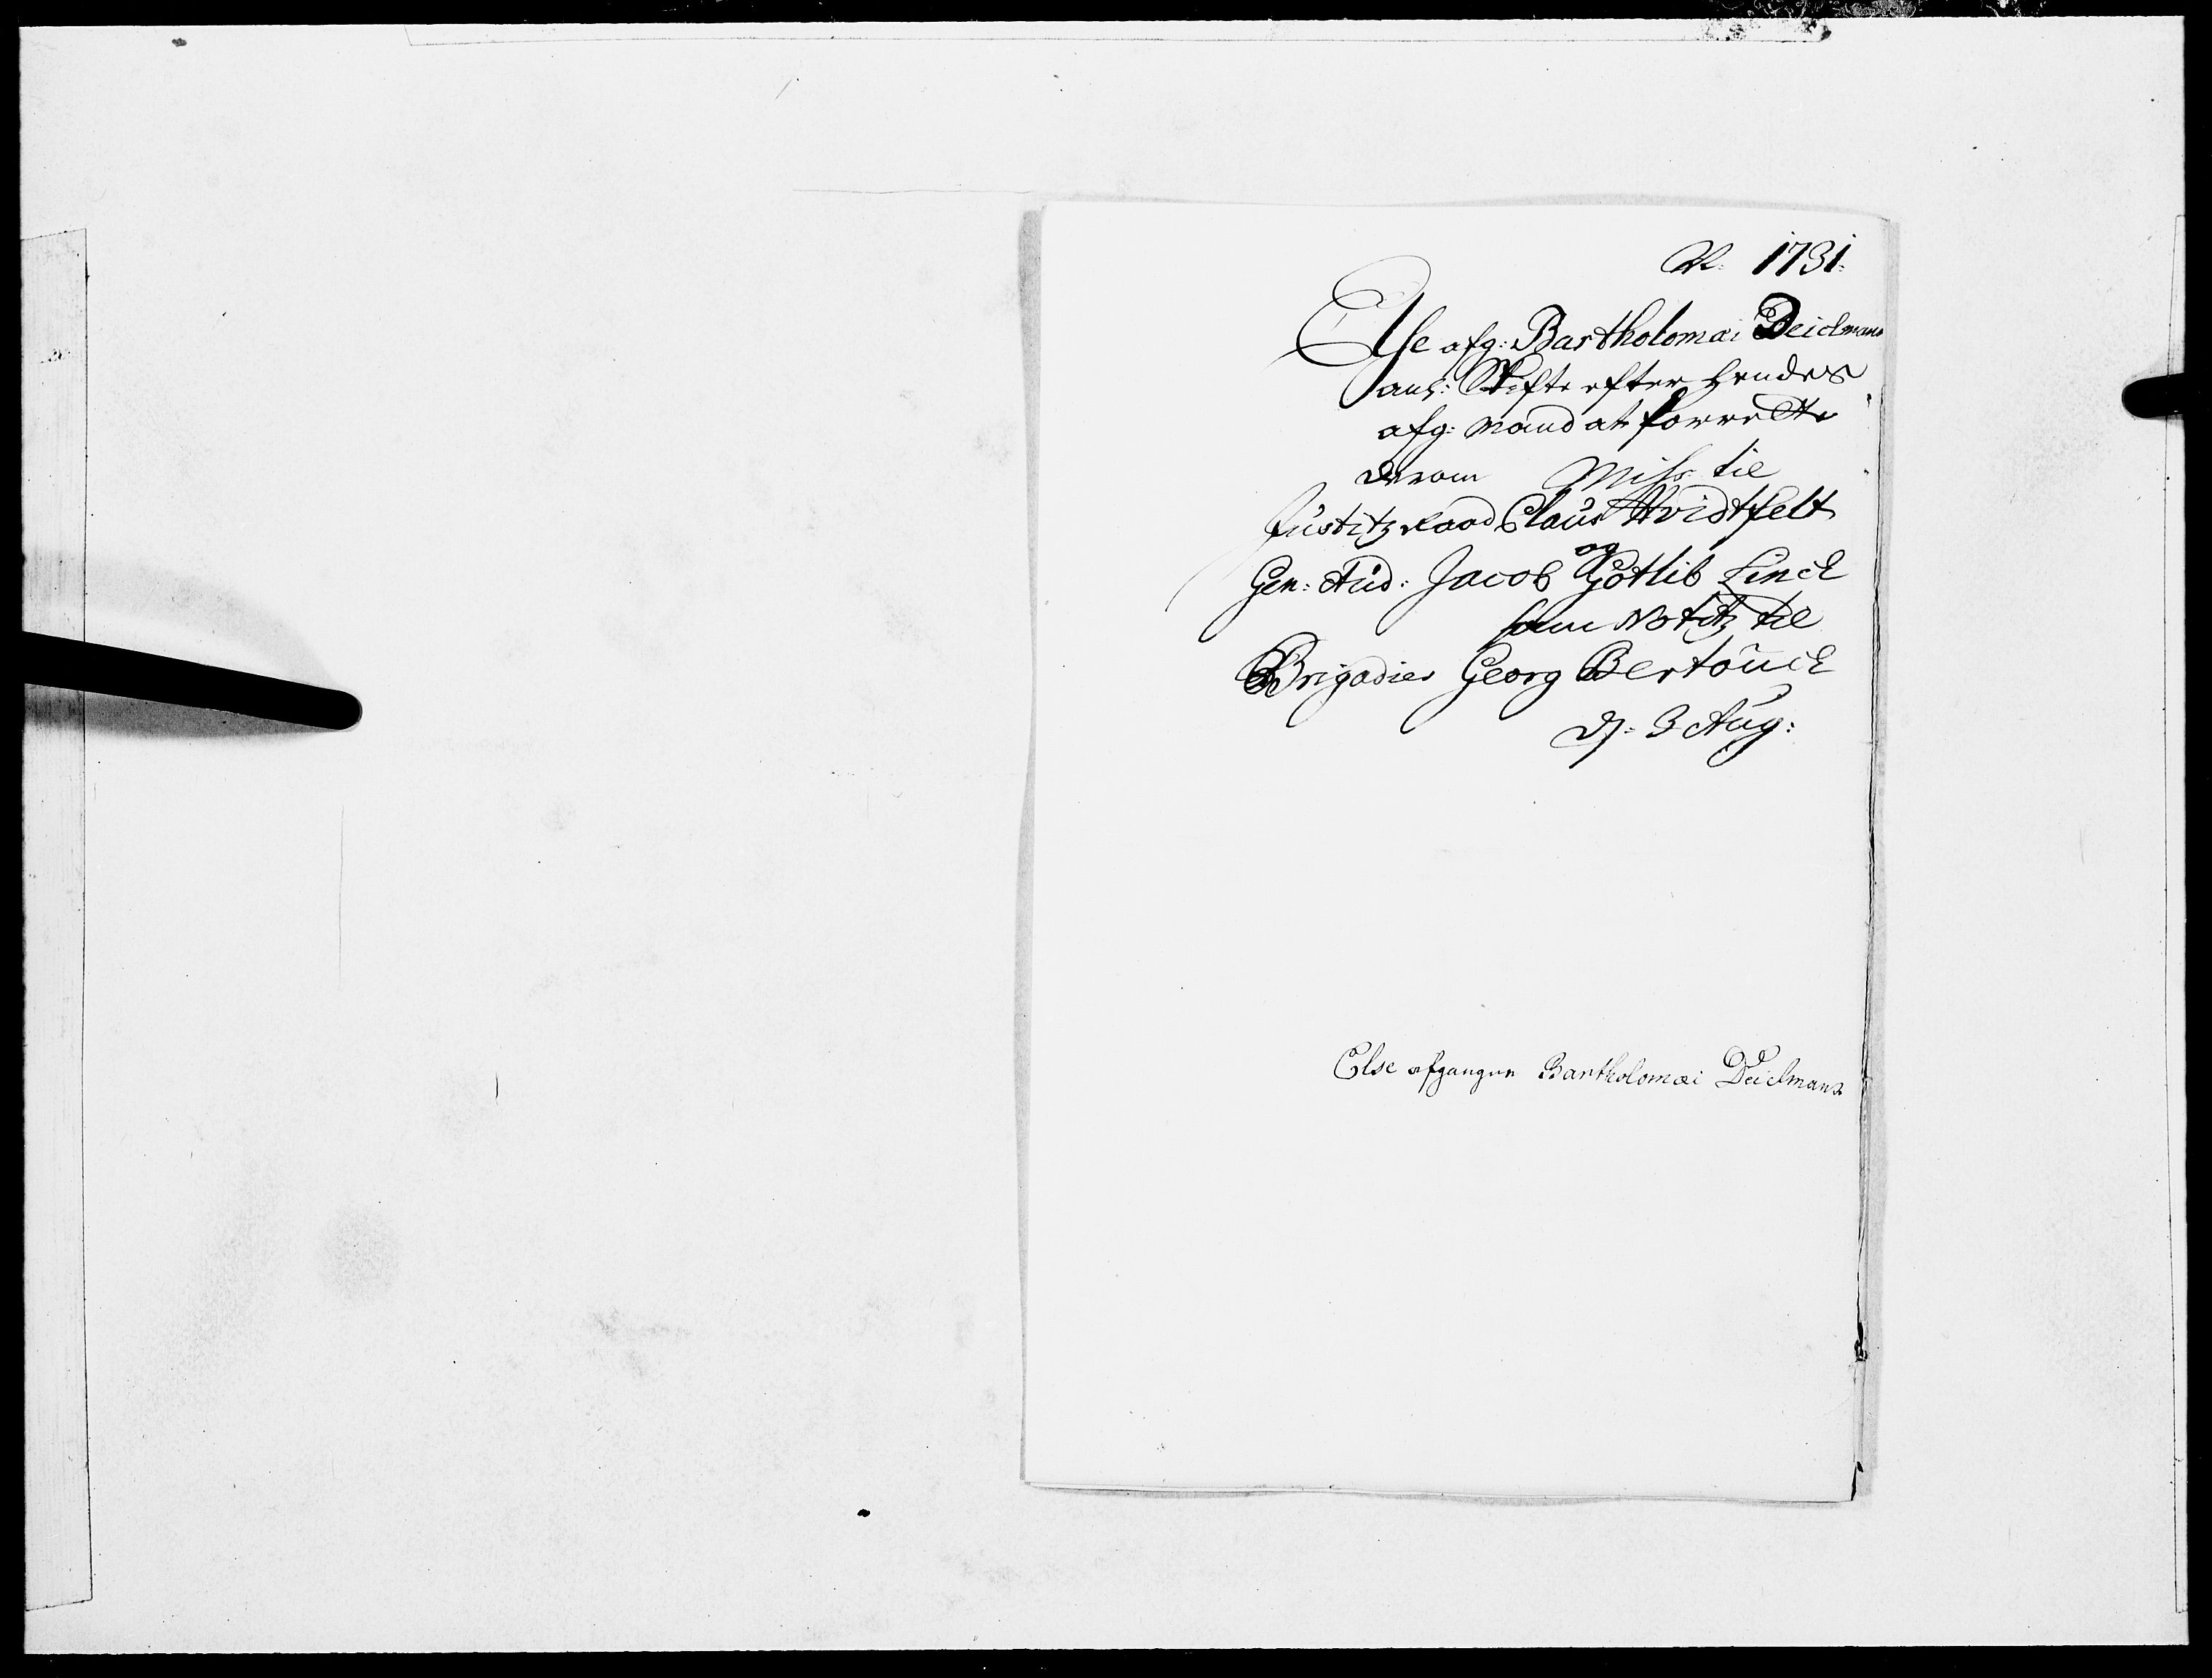 R: 1731.
Else afg: Bartholomæi Deichmans
ang: Skifte efter hendes
afg: Mand at forrette
derom Miss: til
Justitz Raad Claus Hvidtfelt
og
Gen: Aud: Jacob Gotlib Linck
sam Notitz til
Brigadier Georg Bertouch
D: 3 Aug:
Else afgangne Bartholomæi Deichmans